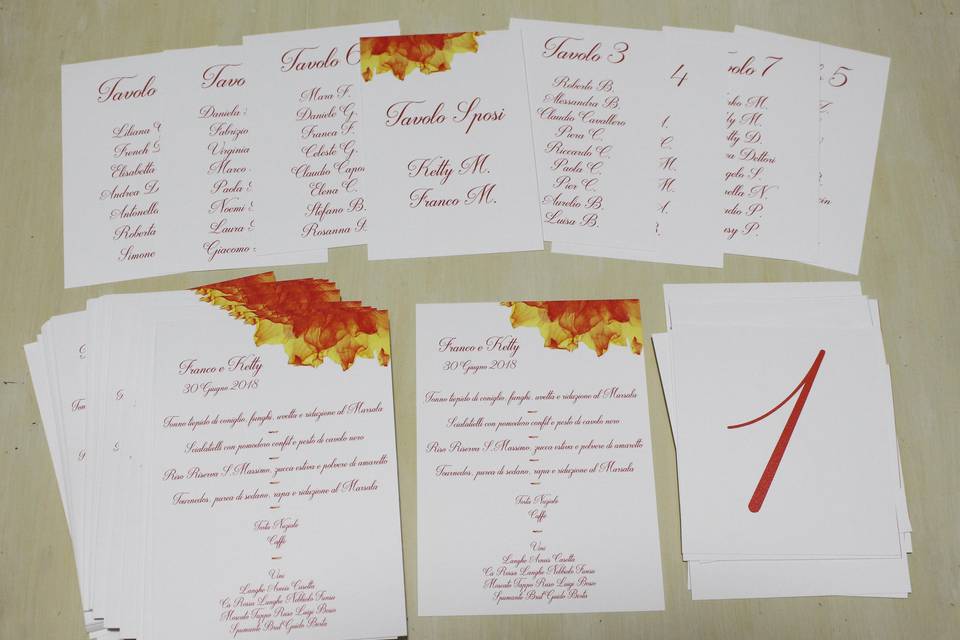 Tavolo
Liliana
French
Elisabetta
Andrea D
Antonello
Roberta
Simone
Tavo
Daniela
Fabrizio
Virginia
Marco
Paola
Noemi
Laura
Giacomo
Tavolo 6
Mara F.
Daniele G.
Franca F.
Celeste G.
Claudio Capo
Elena C.
Stefano B.
Rosanna
Tavolo Sposi
Ketty M.
Franco M.
Tavolo 3
Roberto B.
Alessandra B.
Claudio Cavallero
Piera C.
Riccardo C.
Paola C.
Pier C.
Aurelio B.
Luisa B.
4
M.
M.
volo 7
M.
M.
D.
Dellori
S.
N.
P.
P.
5
Franco e Ketty
30 Giugno 2018
Tonno tiepido di coniglio, funghi, uvetta e riduzione al Marsala
Scialatelli con pomodoro confit e pesto di cavolo nero
Riso Riserva S.Massimo, zucca estiva e polvere di amaretto
Tournedos, purea di sedano, rapa e riduzione al Marsala
Torta Nuziale
Caffè
Vini
Langhe Arneis Casetta
Cà Rossa Langhe Nebbiolo Funsu
Moscato Tappo Raso Luigi Bosso
Spumante Brut Guido Berta
Franco e Ketty
30 Giugno 2018
Tonno tiepido di coniglio, funghi, uvetta e riduzione al Marsala
Scialatelli con pomodoro confit e pesto di cavolo nero
Riso Riserva S.Massimo, zucca estiva e polvere di amaretto
Tournedos, purea di sedano, rapa e riduzione al Marsala
Torta Nuziale
Caffè
Vini
Langhe Arneis Casetta
Cà Rossa Langhe Nebbiolo Funsu
Moscato Tappo Raso Luigi Bosso
Spumante Brut Guido Berta
1